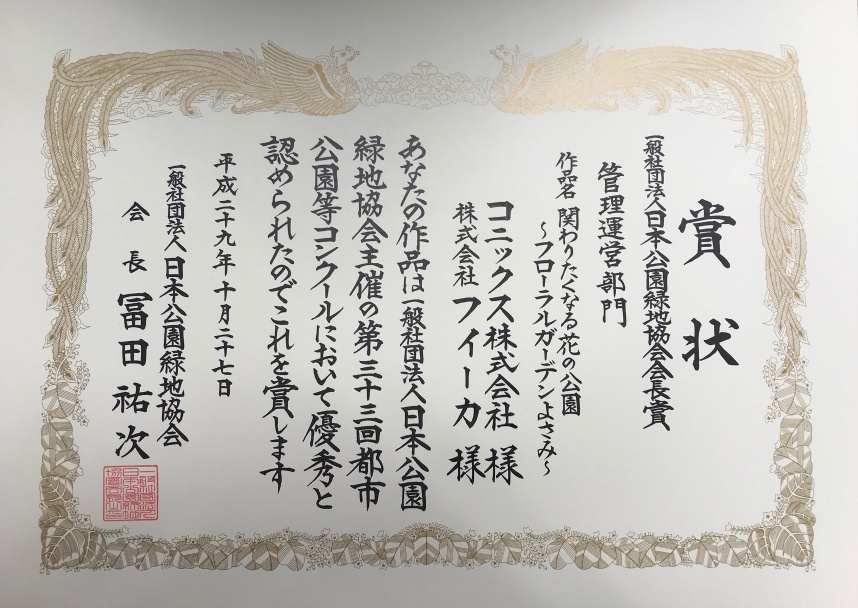 賞状
一般社団法人日本公園緑地協会会長賞
管理運営部門
作品名 関わりたくなる花の公園
～フローラルガーデンよさみ～
コニックス株式会社 様
株式会社 フィーカ 様
あなたの作品は一般社団法人日本公園
緑地協会主催の第三十三回都市
公園等コンクールにおいて優秀と
認められたのでこれを賞します
平成二十九年十月二十七日
一般社団法人日本公園緑地協会
会長 冨田祐次